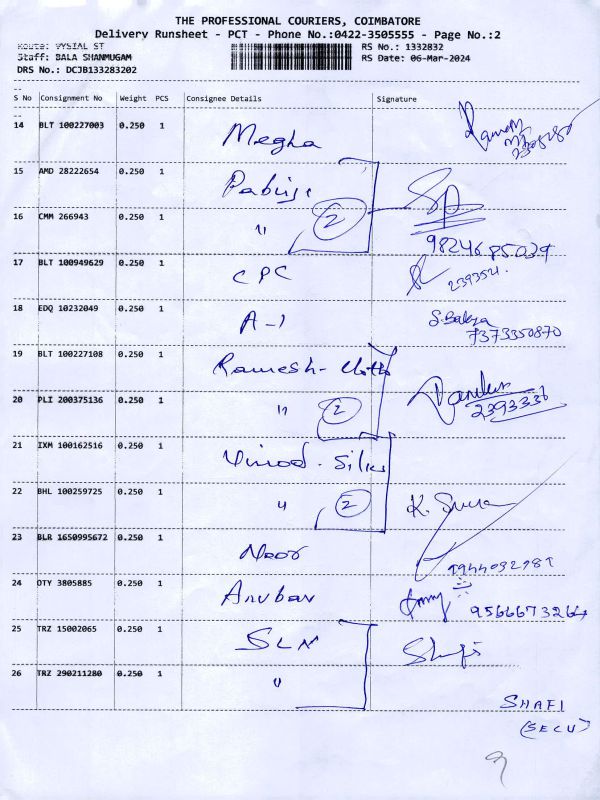 THE PROFESSIONAL COURIERS, COIMBATORE
Delivery Runsheet - PCT - Phone No.:0422-3505555 - Page No.:2
Route: VYSIAL ST
RS No.: 1332832
Staff: BALA SHANMUGAM
RS Date: 06-Mar-2024
DRS No.: DCJB133283202
S No Consignment No Weight PCS Consignee Details Signature
14 BLT 100227003 0.250 1 Megha
15 AMD 28222654 0.250 1
16 CMM 266943 0.250 1 " 2
17 BLT 100949629 0.250 1 CPC
18 EDQ 10232049 0.250 1 A-1 S.Balaya
7373350870
19 BLT 100227108 0.250 1 Ramesh-
20 PLI 200375136 0.250 1 " 2
2393336
21 IXM 100162516 0.250 1 Vinod. Silks
22 BHL 100259725 0.250 1 " 2 K.
23 BLR 1650995672 0.250 1 Noor
24 OTY 3805885 0.250 1 Anuban
9566673264
25 TRZ 15002065 0.250 1 SLN Shafi
26 TRZ 290211280 0.250 1 "
SHAFI
(SECU)